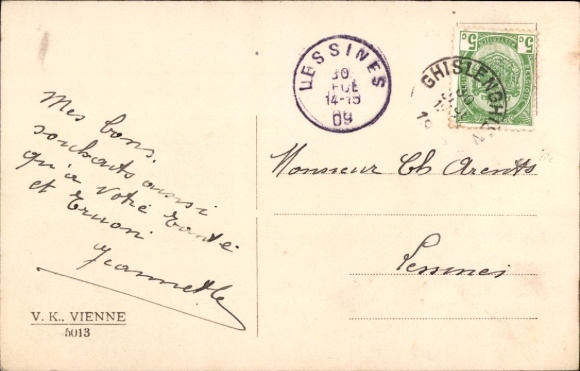 Mes bons
souhaits aussi
qu'à votre tante
et
Jeannette
V. K., VIENNE
5013
LESSINES
30
14-15
09
GHISLENGHIEN
30
5c 5c
Monsieur Ch Arents
Lessines